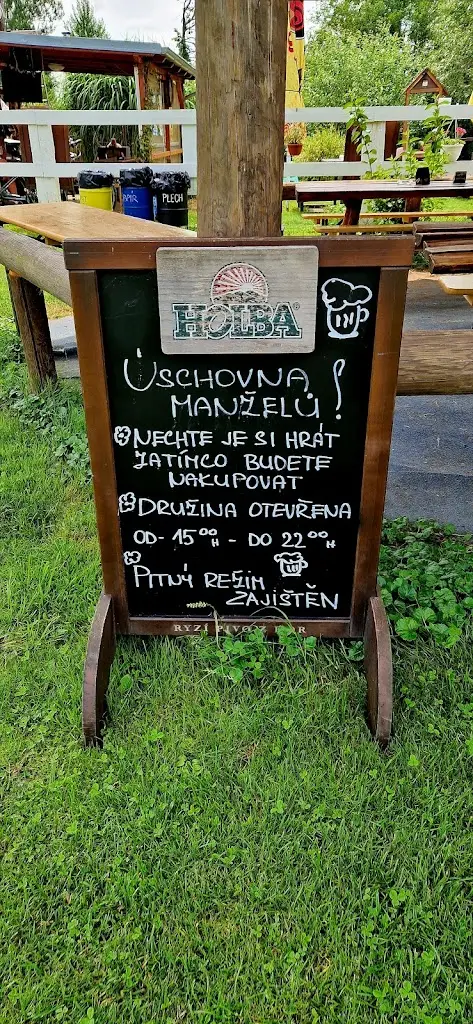 PAPÍR
PLECH
HOLBA®
ÚSCHOVNA
MANŽELŮ!
NECHTE JE SI HRÁT
ZATÍMCO BUDETE
NAKUPOVAT
DRUŽINA OTEVŘENA
OD- 15⁰⁰H - DO 22⁰⁰H
PITNÝ REŽIM
ZAJIŠTĚN
RYZÍ PIVO Z HOR